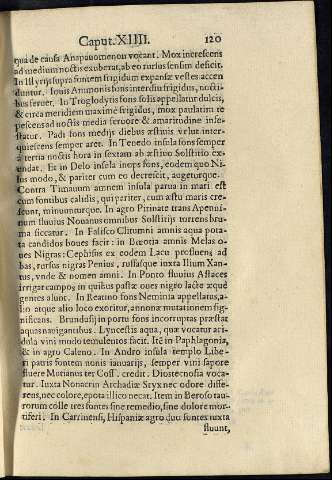 Caput. XIIII. 120
qua de causa Anapauomenon vocant. Mox increscens
ad medium noctis exuberat, ab eo rursus sensim deficit.
In Illyrijs supra fontem frigidum expansæ vestes accen
duntur. Iouis Ammonis fons interdiu frigidus, nocti-
bus feruet. In Troglodytis fons solis appellatur dulcis,
& circa meridiem maximè frigidus, mox paulatim te
pescens ad noctis media feruore & amaritudine infe-
statur. Padi fons medijs diebus æstiuis velut inter-
quiescens semper aret. In Tenedo insula fons semper
à tertia noctis hora in sextam ab æstiuo Solstitio ex-
undat. Et in Delo insula inops fons, eodem quo Ni-
lus modo, & pariter cum eo decrescit, augeturque.
Contra Timauum amnem insula parua in mari est
cum fontibus calidis, qui pariter, cum æstu maris cre-
scunt, minuunturque. In agro Pitinate trans Apenni-
num fluuius Nouanus omnibus Solstitijs torrens bru-
ma siccatur. In Falisco Clitumni amnis aqua pota-
ta candidos boues facit: in Bœotia amnis Melas o-
ues Nigras: Cephisus ex eodem Lacu profluens, ad
bas, rursus nigras Penius, ruffasque iuxta Ilium Xan-
tus, vnde & nomen amni. In Ponto fluuius Astaces
irrigat campos in quibus pastæ oues nigro lacte æquè
gentes alunt. In Reatino fons Neminia appellatus, a-
lio atque alio loco exoritur, annonæ mutationem sig-
nificans. Brundusij in portu fons incorruptas præstat
aquas nauigantibus. Lyncestis aqua, quæ vocatur aci-
dula vini modo temulentos facit. Itẽ in Paphlagonia,
& in agro Caleno. In Andro insula templo Libe-
ri patris fontem nonis ianuarijs, semper vini sapore
fluere Motianus ter Coss. credit. Diostecnosia voca-
tur. Iuxta Nonacrin Archadiæ Styx nec odore diffe-
rens, nec colore, epota illico necat. Item in Beroso tau-
rorum colle tres fontes sine remedio, sine dolore mor-
tiferi. In Carrinensi, Hispaniæ agro duo fontes iuxta
fluunt,